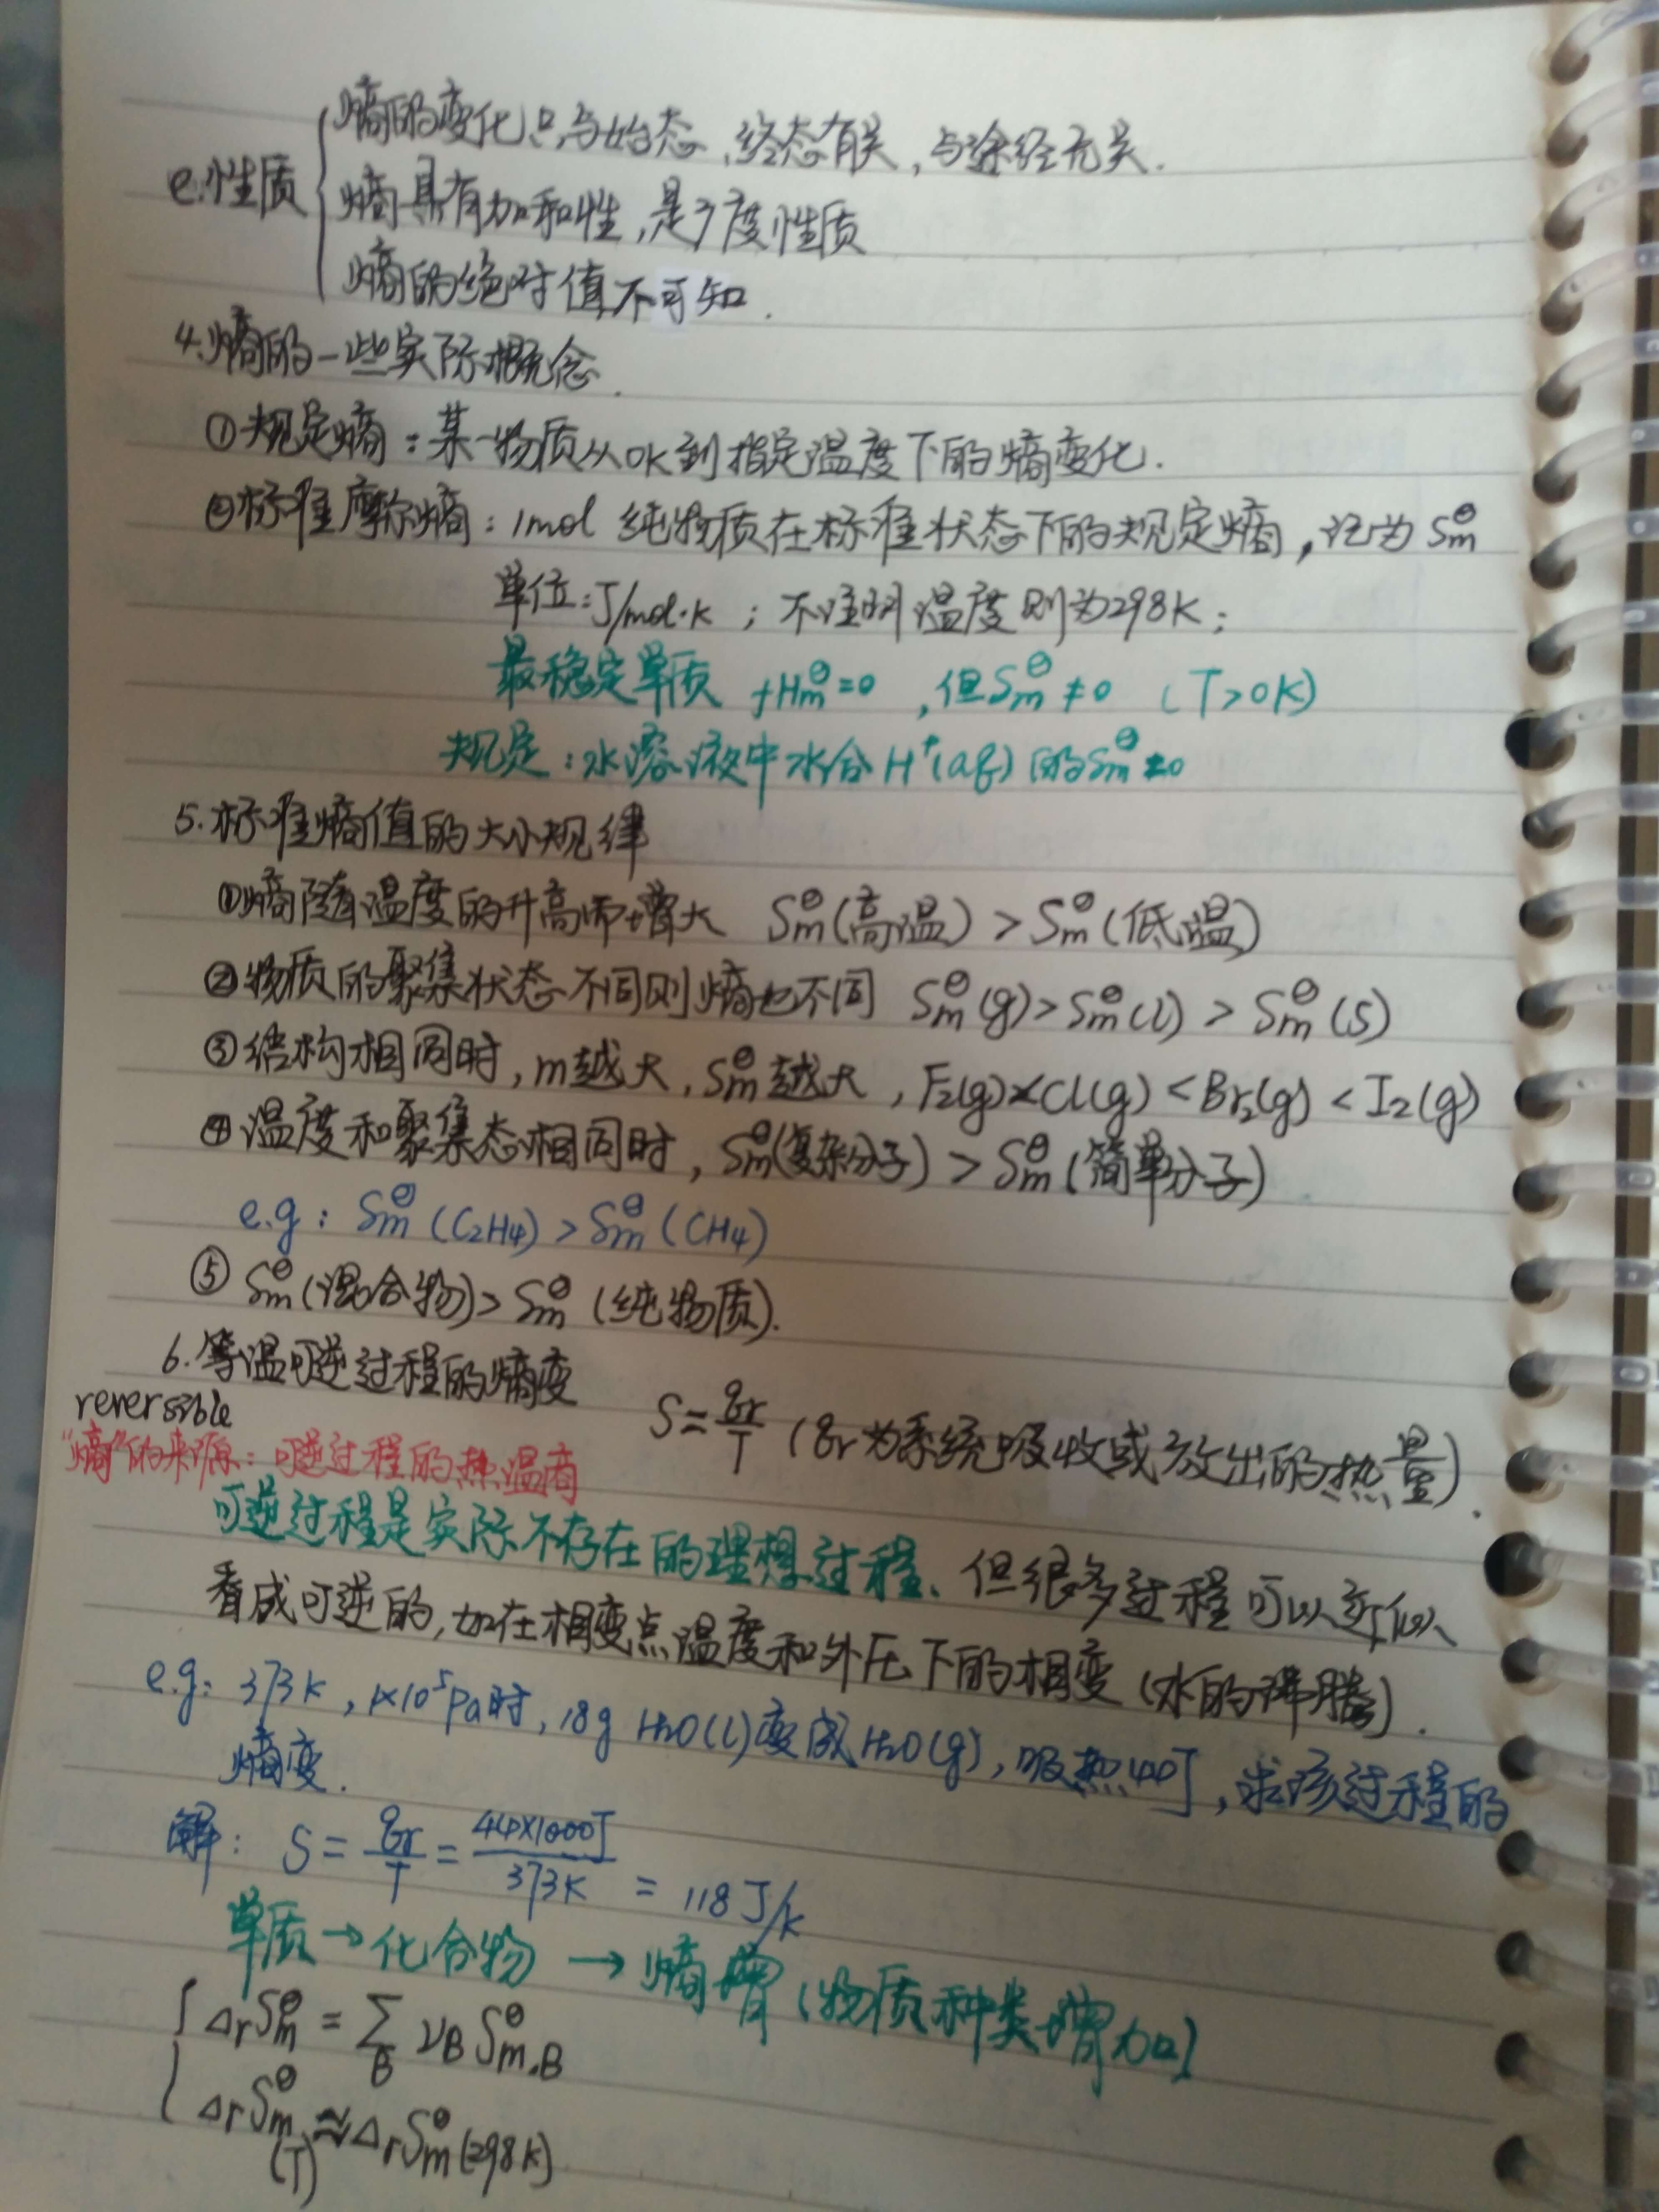 e.性质
熵的变化只与始态、终态有关,与途径无关.
熵具有加和性,是广度性质
熵的绝对值不可知.
4.熵的一些实际概念.
①规定熵:某一物质从0K到指定温度下的熵变化.
②标准摩尔熵:1mol 纯物质在标准状态下的规定熵,记为 Sm⊖
单位:J/mol·K ; 不注明温度则为298K;
最稳定单质 fHm⊖=0 ,但Sm⊖≠0 (T>0K)
规定:水溶液中水合H⁺(aq)的Sm⊖=0
5.标准熵值的大小规律
①熵随温度的升高而增大 Sm⊖(高温)>Sm⊖(低温)
②物质的聚集状态不同则熵也不同 Sm⊖(g)>Sm⊖(l)>Sm⊖(s)
③结构相同时,m越大,Sm⊖越大,F₂(g)<Cl(g)<Br₂(g)<I₂(g)
④温度和聚集态相同时,Sm⊖(复杂分子)>Sm⊖(简单分子)
e.g: Sm⊖(C₂H₄)>Sm⊖(CH₄)
⑤ Sm⊖(混合物)>Sm⊖(纯物质).
6.等温可逆过程的熵变
reversible
S=qr/T (qr为系统吸收或放出的热量).
"熵"的来源:可逆过程的热温商
可逆过程是实际不存在的理想过程、但很多过程可以近似
看成可逆的,如在相变点温度和外压下的相变(水的沸腾).
e.g: 373K,1×10⁵Pa时,18g H₂O(l)变成H₂O(g),吸热44PJ,求该过程的
熵变.
解: S=qr/T=44×1000J/373K=118J/K
单质→化合物→熵增(物质种类增加)
ΔrSm⊖=∑B νB Sm,B⊖
ΔrSm⊖(T)≈ΔrSm⊖(298K)